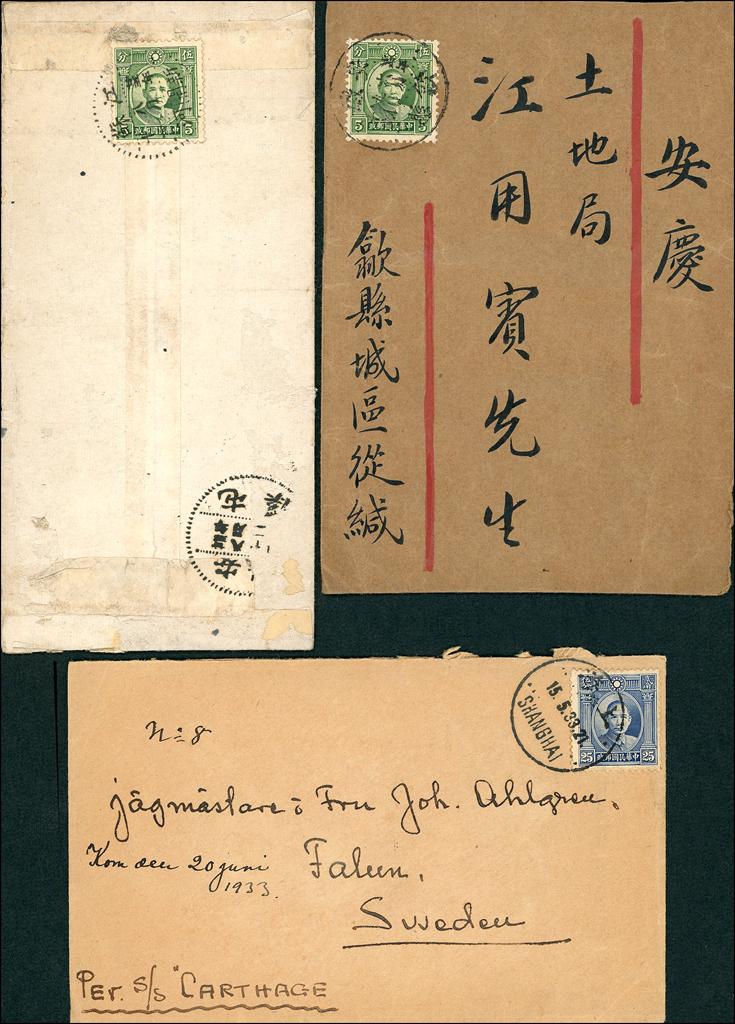 伍
分
5
中華民國郵政
屯
溪
安
伍
分
5
5
中華民國郵政
安慶
土地局
江用賓先生
歙縣城區從緘
15.5.33.21
SHANGHAI
25
25
中華民國郵政
N:o 8
Jägmästare o Fru Joh. Ahlgren,
Kom den 20 juni
1933.
Falun,
Sweden
Per. S/s "CARTHAGE